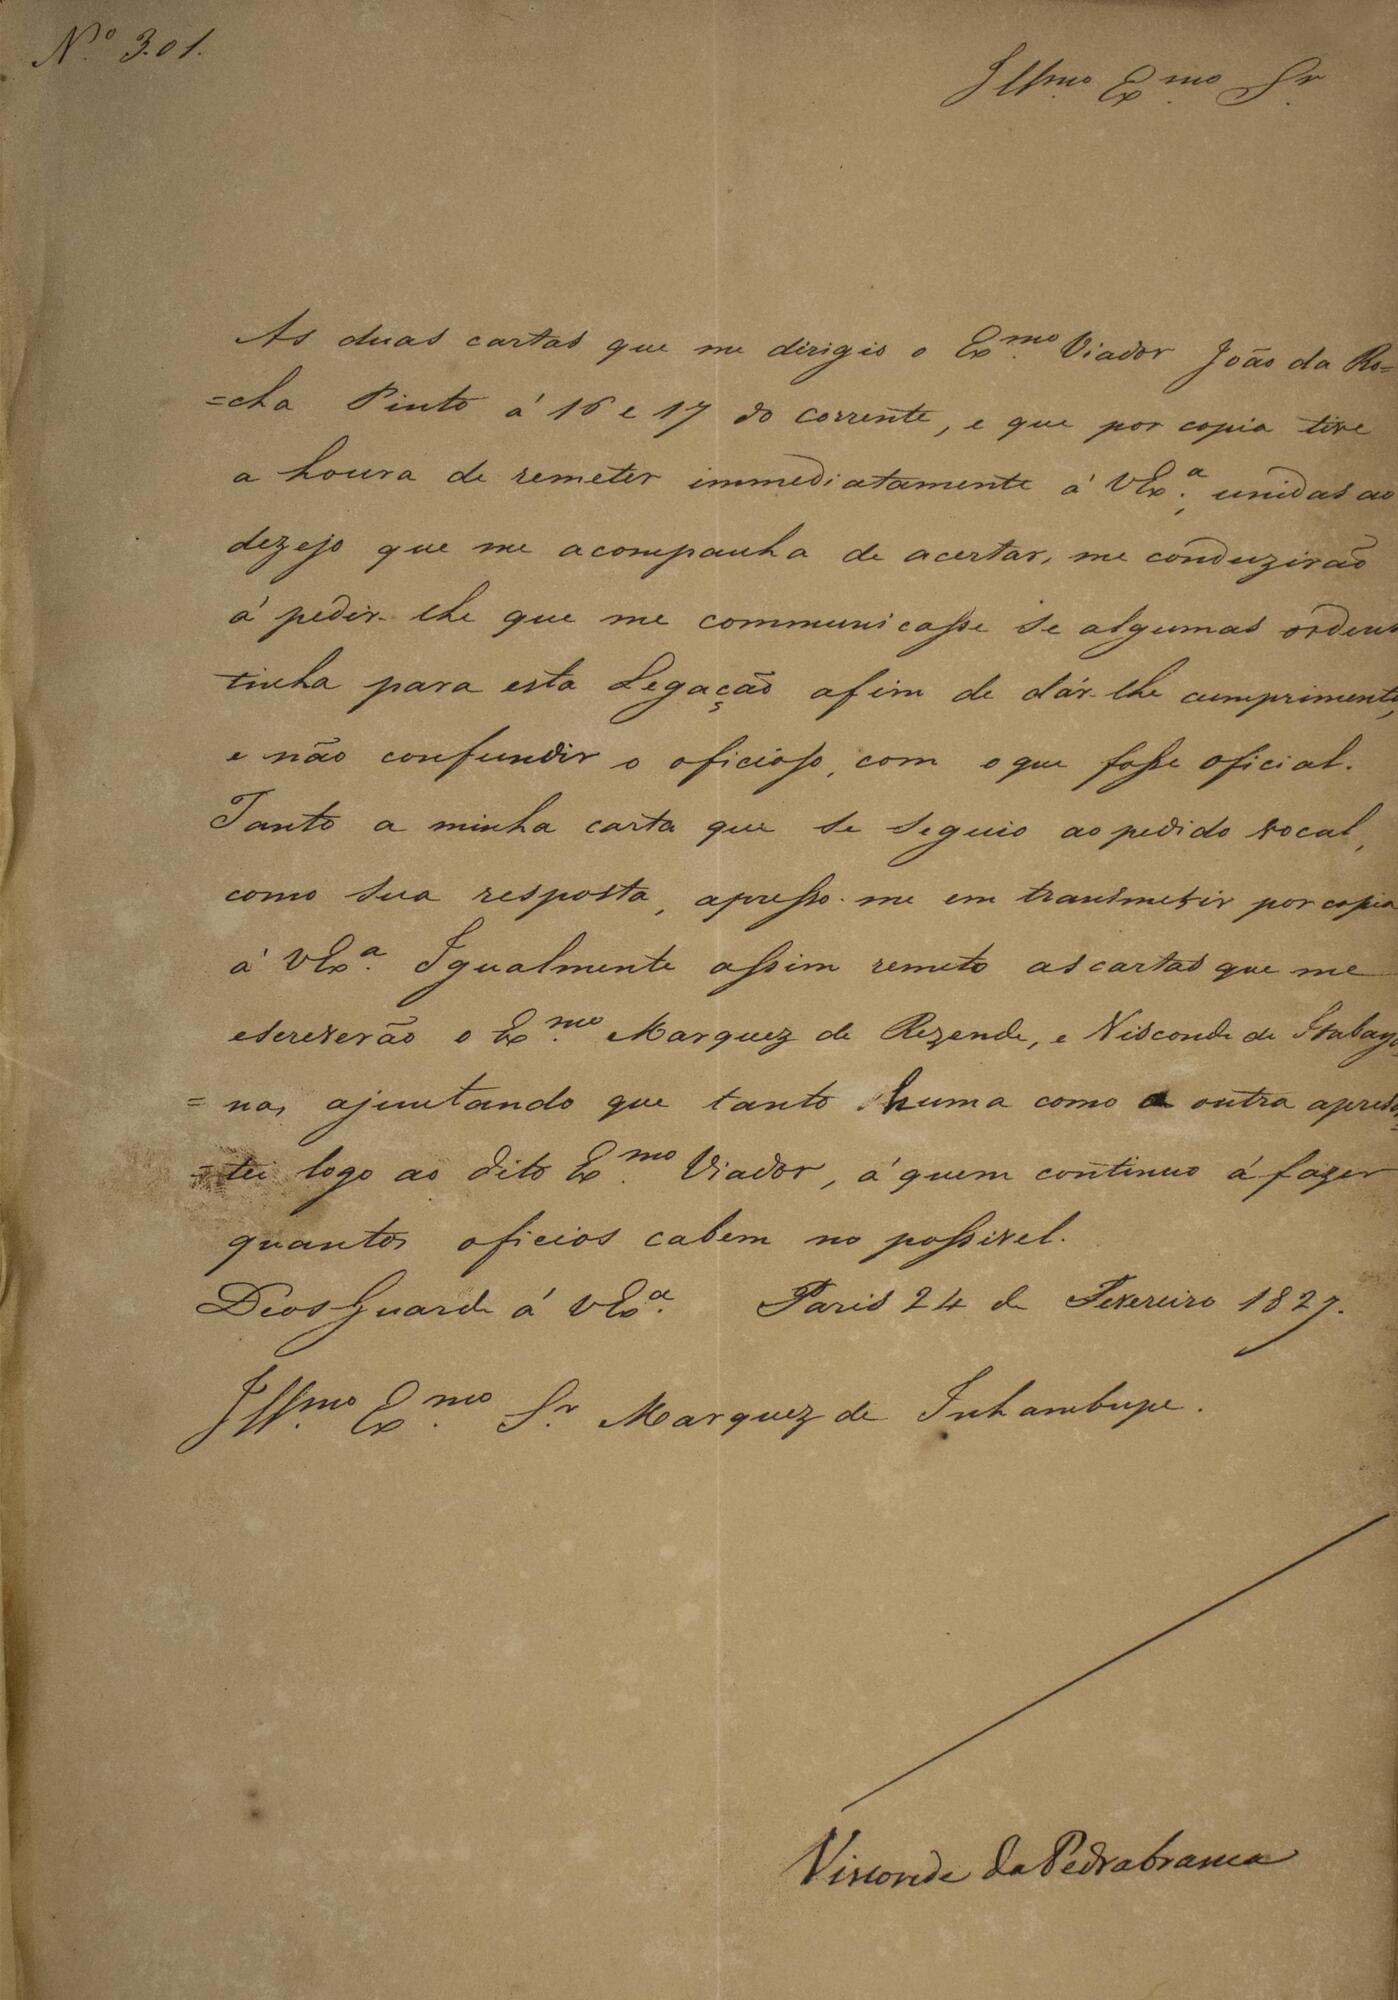 N.º 301.
Illmo Exmo Sr
As duas cartas que me dirigio o Exmo Viador João da Ro=
=cha Pinto á 16 e 17 do corrente, e que por copia tive
a honra de remeter immediatamente á VExª, unidas ao
dezejo que me acompanha de acertar, me conduzirão
á pedir-lhe que me communicasse se algumas ordens
tinha para esta Legação afim de dár-lhe cumprimento,
e não confundir o oficioso, com o que fosse oficial.
Tanto a minha carta que se seguio ao pedido vocal,
como sua resposta, apresso-me em transmetir por copia
á VExª. Igualmente assim remeto as cartas que me
escreverão o Exmo Marquez de Rezende, e Visconde de Itabaya=
=na, ajuntando que tanto huma como a outra apresen=
=tei logo ao dito Exmo Viador, á quem continuo á fazer
quantos oficios cabem no possivel.
Deos Guarde á VExª. Paris 24 de Fevereiro 1827.
Illmo Exmo Sr Marquez de Inhambupe.
Visconde da Pedrabranca